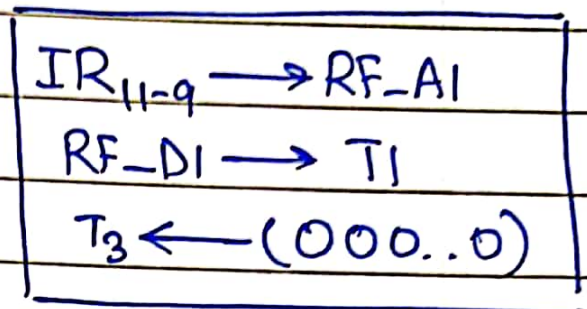 IR₁₁₋₉ → RF_A1
RF_D1 → T1
T₃ ← (000..0)